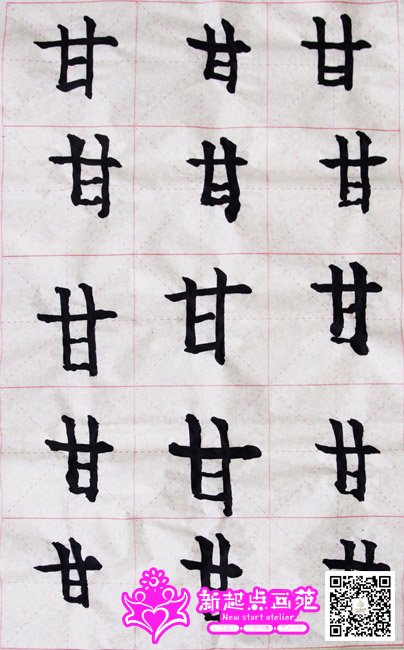 甘 甘 甘
甘 甘 甘
甘 甘 甘
甘 甘 甘
甘 甘 甘
新起点画苑
New start atelier